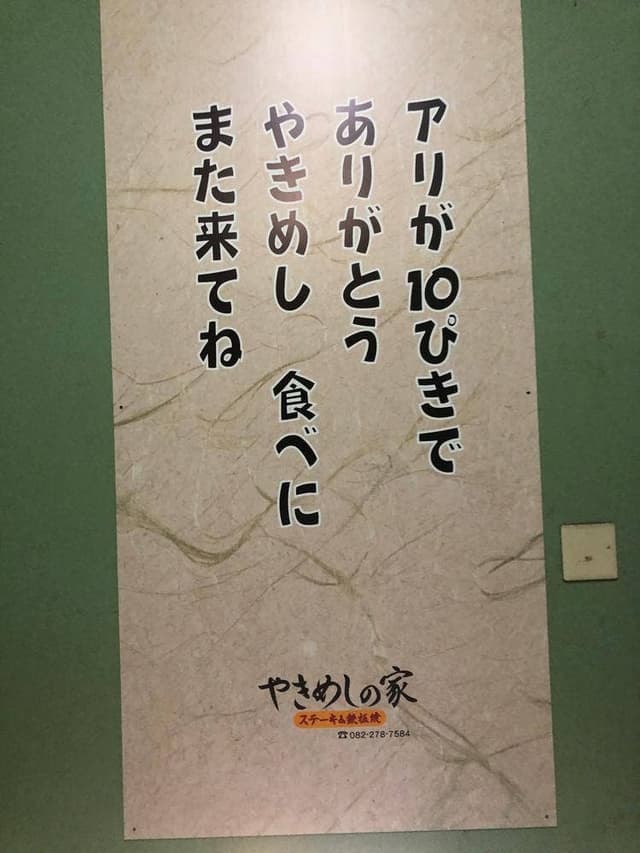 アリが10ぴきで
ありがとう
やきめし 食べに
また来てね
やきめしの家
ステーキ&鉄板焼
☎082-278-7584